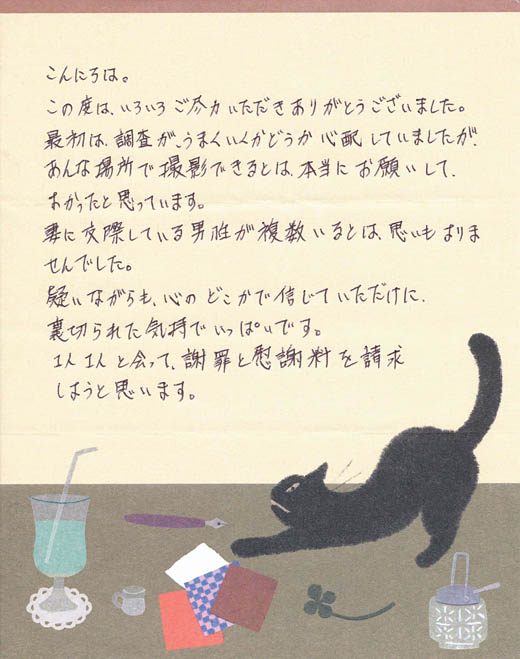 こんにちは。
この度は、いろいろご尽力いただきありがとうございました。
最初は、調査が、うまくいくかどうか心配していましたが、
あんな場所で撮影できるとは、本当にお願いして、
よかったと思っています。
妻に交際している男性が複数いるとは、思いもよりま
せんでした。
疑いながらも、心のどこかで信じていただけに、
裏切られた気持でいっぱいです。
1人1人と会って、謝罪と慰謝料を請求
しようと思います。